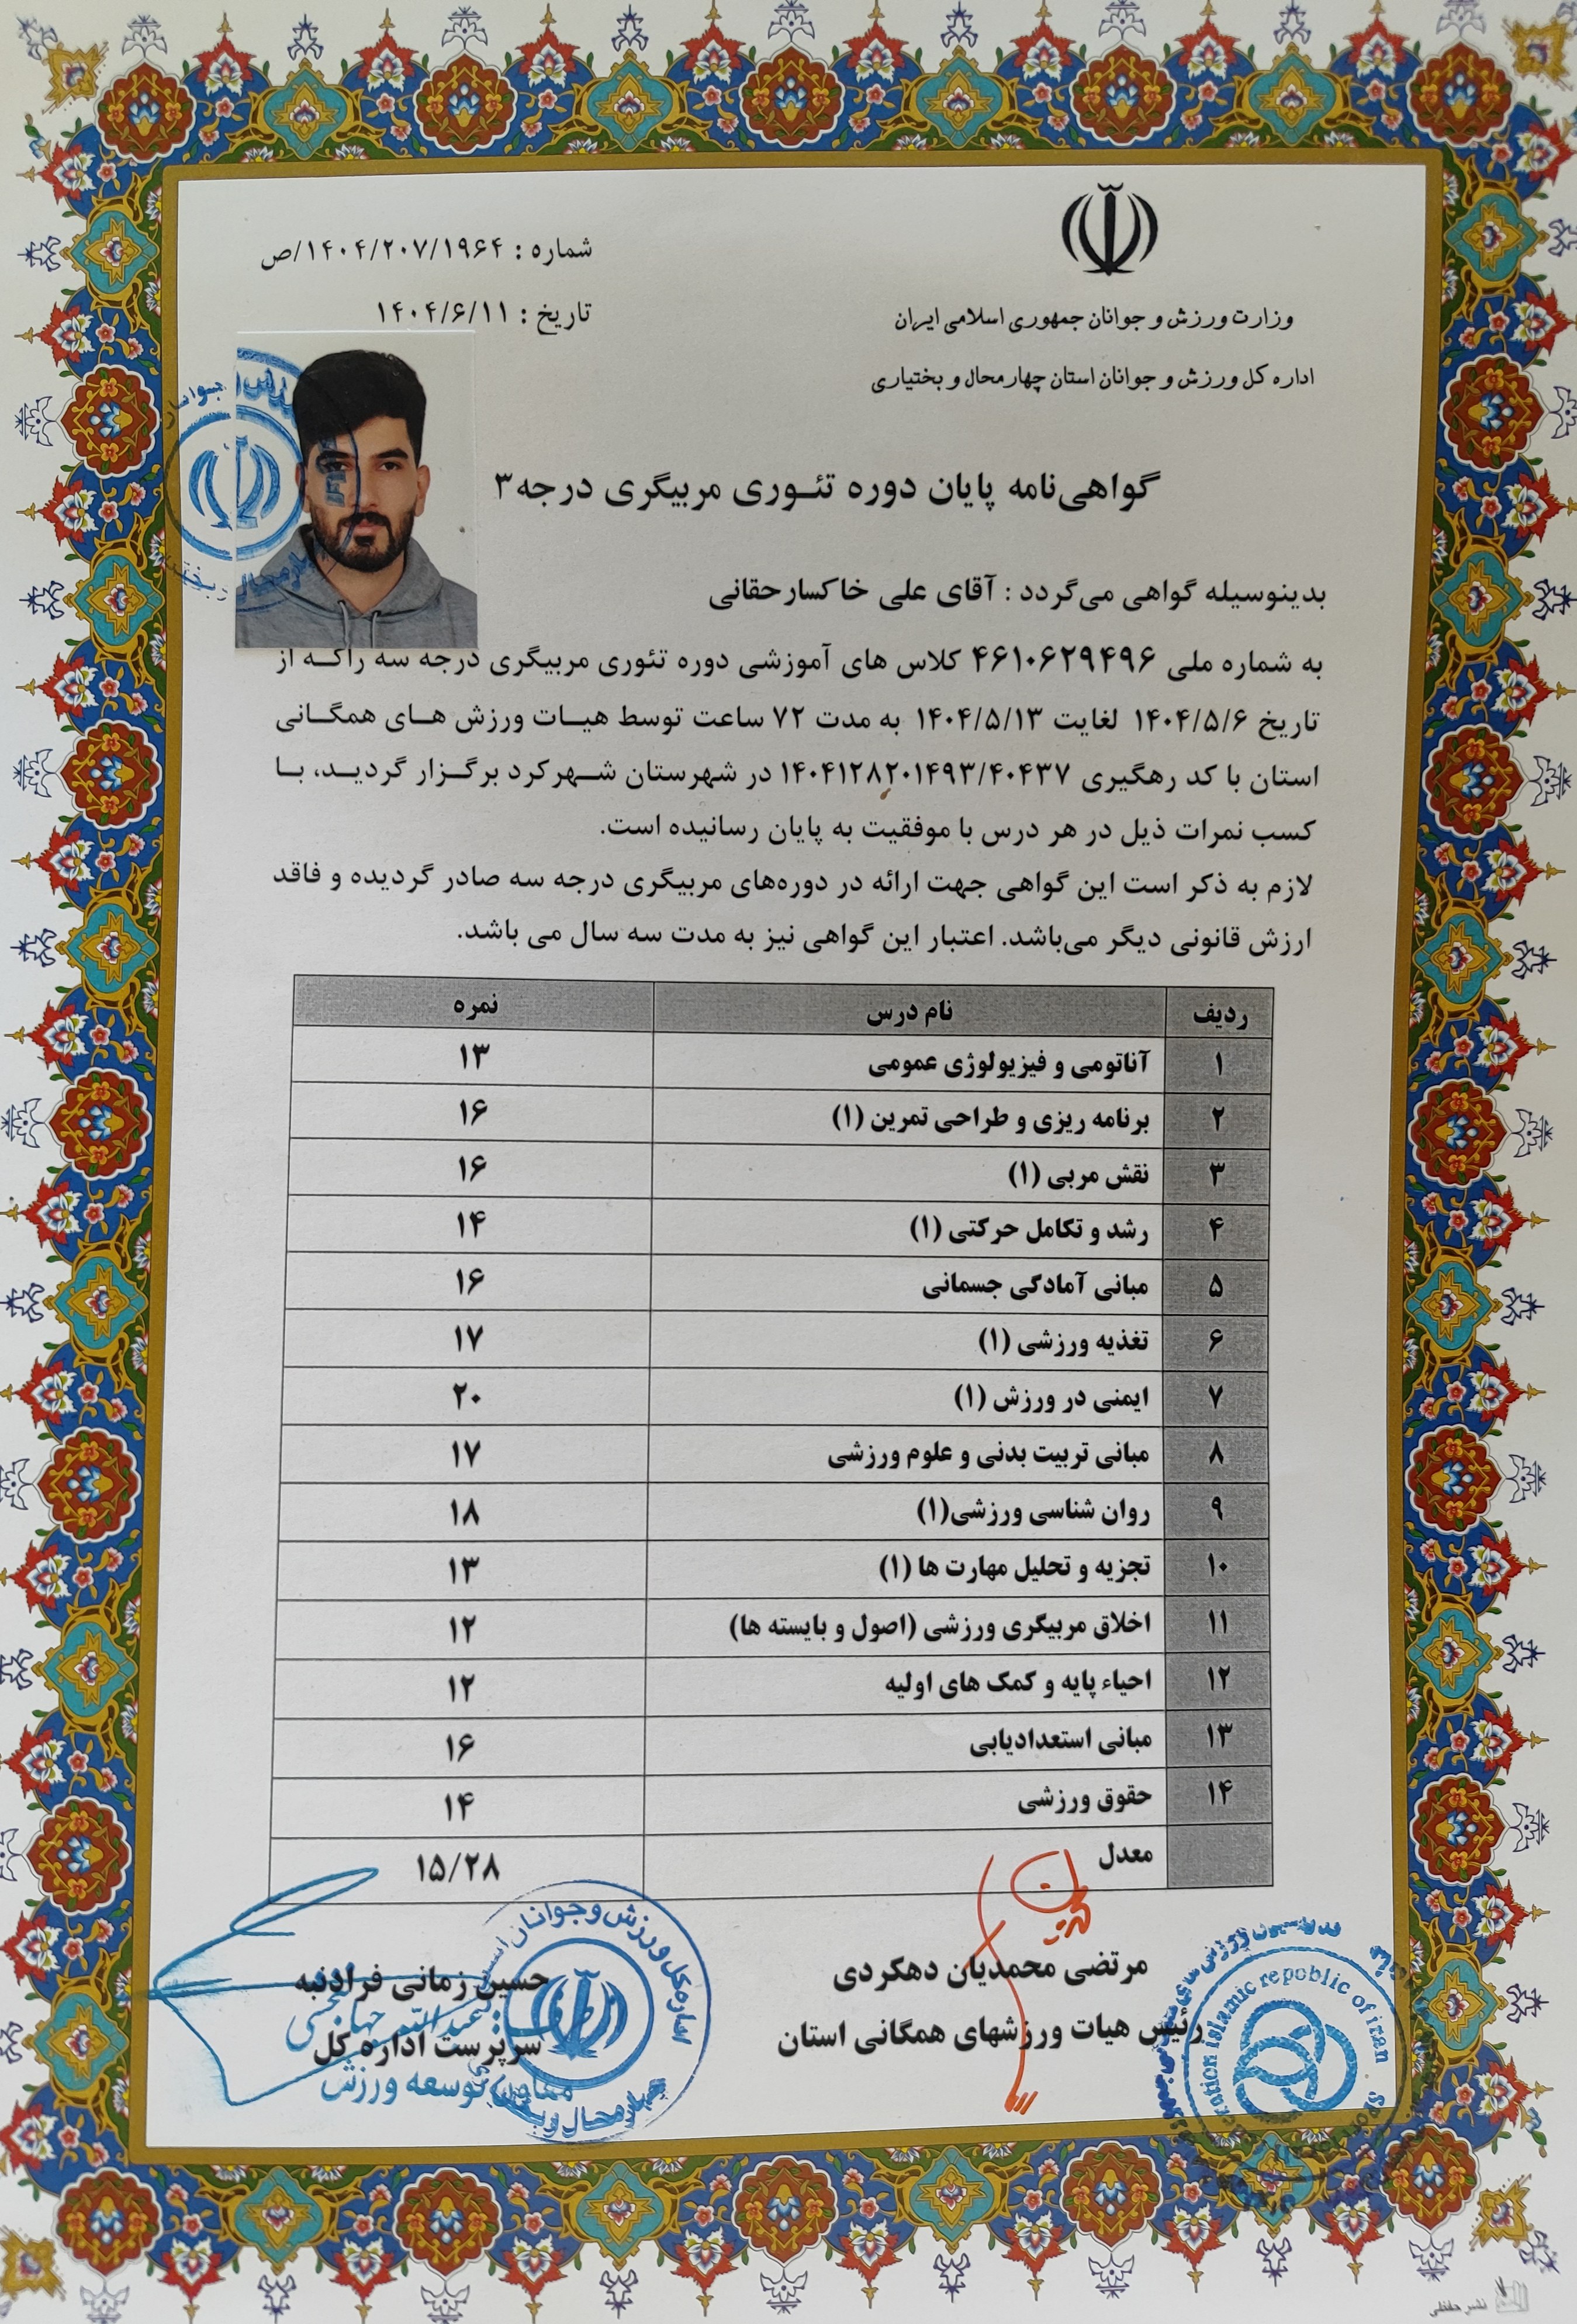 شماره : ۱۴۰۴/۲۰۷/۱۹۶۴/ص
تاریخ : ۱۴۰۴/۶/۱۱
وزارت ورزش و جوانان جمهوری اسلامی ایران
اداره کل ورزش و جوانان استان چهارمحال و بختیاری
گواهی‌نامه پایان دوره تئـوری مربیگری درجه۳
بدینوسیله گواهی می‌گردد : آقای علی خاکسارحقانی
به شماره ملی ۴۶۱۰۶۲۹۴۹۶ کلاس های آموزشی دوره تئوری مربیگری درجه سه راکـه از
تاریخ ۱۴۰۴/۵/۶ لغایت ۱۴۰۴/۵/۱۳ به مدت ۷۲ ساعت توسط هیـات ورزش هـای همگـانی
استان با کد رهگیری ۱۴۰۴۱۲۸۲۰۱۴۹۳/۴۰۴۳۷ در شهرستان شـهرکرد برگـزار گردیـد، بـا
کسب نمرات ذیل در هر درس با موفقیت به پایان رسانیده است.
لازم به ذکر است این گواهی جهت ارائه در دوره‌های مربیگری درجه سه صادر گردیده و فاقد
ارزش قانونی دیگر می‌باشد. اعتبار این گواهی نیز به مدت سه سال می باشد.
ردیف نام درس نمره
۱ آناتومی و فیزیولوژی عمومی ۱۳
۲ برنامه ریزی و طراحی تمرین (۱) ۱۶
۳ نقش مربی (۱) ۱۶
۴ رشد و تکامل حرکتی (۱) ۱۴
۵ مبانی آمادگی جسمانی ۱۶
۶ تغذیه ورزشی (۱) ۱۷
۷ ایمنی در ورزش (۱) ۲۰
۸ مبانی تربیت بدنی و علوم ورزشی ۱۷
۹ روان شناسی ورزشی(۱) ۱۸
۱۰ تجزیه و تحلیل مهارت ها (۱) ۱۳
۱۱ اخلاق مربیگری ورزشی (اصول و بایسته ها) ۱۲
۱۲ احیاء پایه و کمک های اولیه ۱۲
۱۳ مبانی استعدادیابی ۱۶
۱۴ حقوق ورزشی ۱۴
معدل ۱۵/۲۸
مرتضی محمدیان دهکردی
رئیس هیات ورزشهای همگانی استان
حسین زمانی فرادنبه
سرپرست اداره کل
معاون توسعه ورزش
اداره کل ورزش و جوانان
چهارمحال و
islamic repoblic of iran